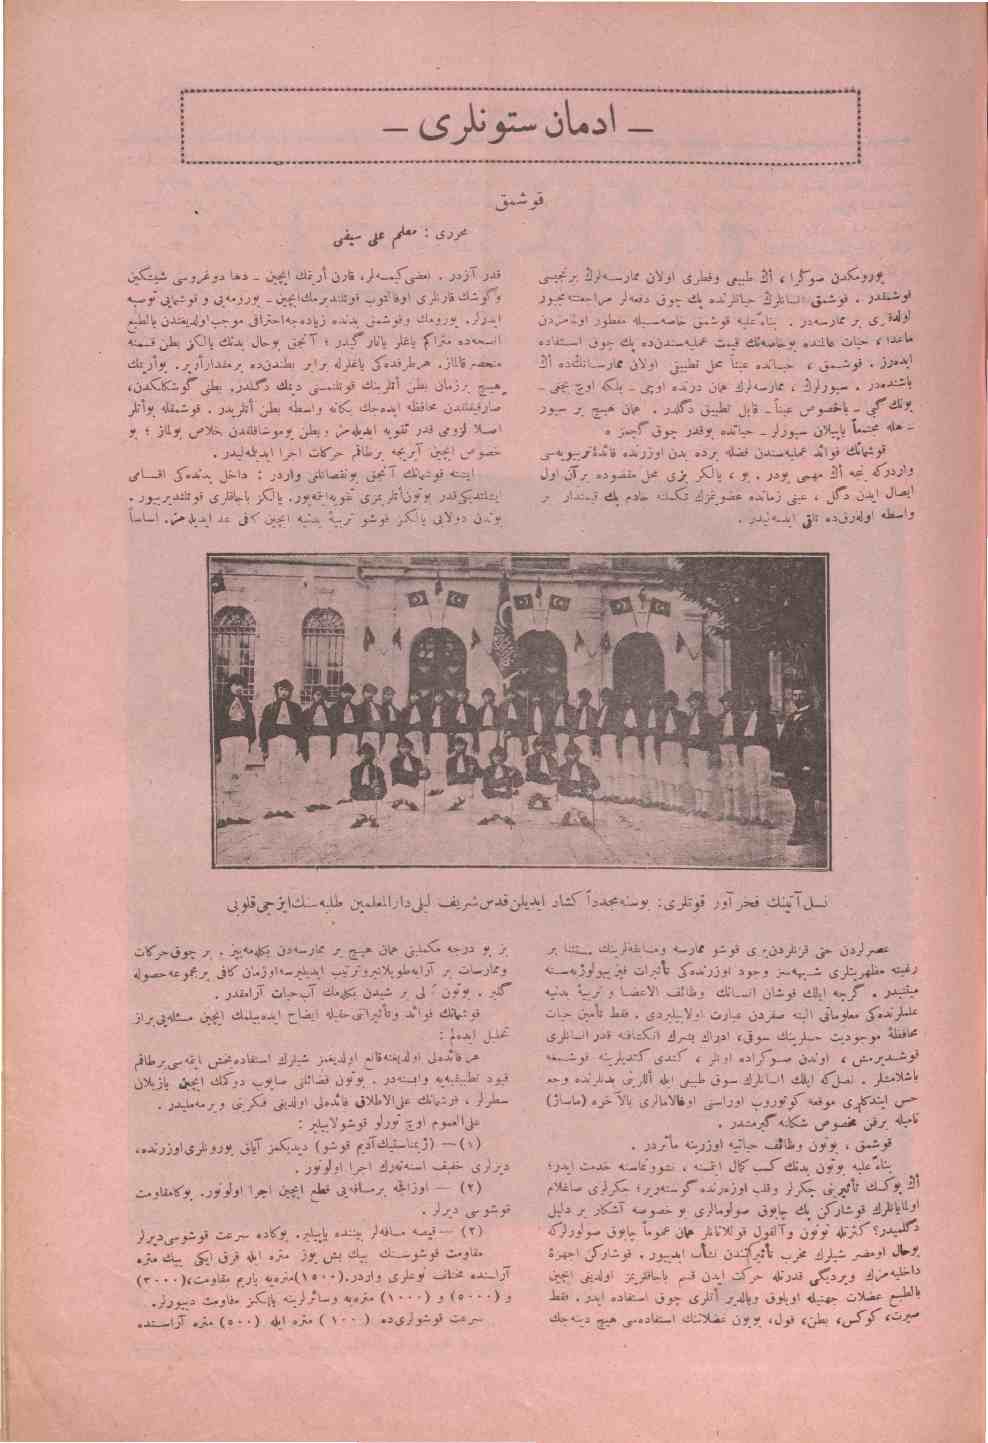 — ادمان ستونلری —
قوشمق
محرری : معلم علی سیفی
یورومكدن صوكرا ، اك طبیعی وفطری اولان ممارسه‌لرك برنجیسی
قوشمقدر . قوشمق انسانلرك حیاتلرنده پك چوق دفعه‌لر مراجعتنه مجبور
بر ممارسه‌در . بناءً علیه قوشمق خاصه‌سیله مفطور
ماعدا ، حیات عالمنده بوخاصه‌نك قیمت عملیه‌سندن‌ده پك چوق استفاده
ایده‌رز . قوشمق ، حیاتده عیناً محل تطبیق اولان اك
باشنده‌در . سپورلرك ، ممارسه‌لرك همان درنده اوچی - بلكه اوچ بچقی -
بونك كبی - بالخصوص عیناً - قابل تطبیق دكلدر . همان هیچ بر سپور
- هله مجتمعاً یاپیلان سپورلر - حیاتده بوقدر چوق كچمز .
قوشمانك فوائد عملیه‌سندن فضله برده بدن اوزرنده فائدۀ تربیویه‌سی
واردركه بجه اك مهمی بودر . بو ، یالكز بزی محل مقصوده برآن اول
ایصال ایدن دكل ، عینی زمانده عضویتمزك تكملنه خادم پك قیمتدار بر
واسطه اوله‌رق‌ده تلقی ایدلمه‌لیدر .
قدر آزدر . بعضی كیمسه‌لر ، قارن اریتمك ایچین - دها دوغروسی شیشكین
وكوشك قارنلری اوفالتوب قوتلندیرمك ایچین - یورومه‌یی و قوشمایی توصیه
ایدرلر. یورومك وقوشمق بدنده زیاده‌جه احتراقی موجب اولدیغندن بالطبع
انسجه‌ده متراكم یاغلر یانار كیدر ؛ آنجق بوحال بدنك یالكز بطن قسمنه
منحصر قالماز. هرطرفده‌كی یاغلرله برابر بطندن‌ده برمقدار اریر. بواریتمك
هیچ برزمان بطن اتلرینك قوتلنمسی دیمك دكلدر. بطنی كوشكلكدن،
صارقیقلقدن محافظه ایده‌جك یكانه واسطه بطن اتلریدر . قوشمقله بواتلر
اصلا لزومی قدر تقویه ایدیله‌مز و بطن بویوشاقلقدن خلاص بولماز ؛ بو
خصوص ایچین آیریجه برطاقم حركات اجرا ایدیلملیدر.
ایشته قوشمانك آنجق بونقصانلغی واردر : داخل بدنده‌كی اقسامی
ایشلتدیكی قدر بوتون اتلریمزی تقویه ایتمه‌یور. یالكز باجاقلری قوتلندیرییور.
بوندن دولایی یالكز قوشو تربیۀ بدنیه ایچین كافی عد ایدیله‌مز. اساساً
نسل آتینك فخر آور قوتلری: بوسنه مجدداً كشاد ایدیلن قدس شریف لیلی دارالمعلمین طلبه‌سنك ایزجی قلوبی
عصرلردن حتی قرنلردن بری قوشو ممارسه ومسابقه‌لرینك مستثنا بر
رغبته مظهریتلری شبهه‌سز وجود اوزرنده‌كی تأثیرات فیزیولوژیه‌سنه
مبتنیدر . كرچه ایلك قوشان انسانك وظائف الاعضا و تربیۀ بدنیه
علملرنده‌كی معلوماتی البته صفردن عبارت اولابیلیردی . فقط تأمین حیات
محافظۀ موجودیت حسلرینك سوقی، ادراك بشرك انكشافنه قدر انسانلری
قوشدیرمش ، اوندن صوكراده اونلر ، كندی كندیلرینه قوشمغه
باشلامشلر . نصل‌كه ایلك انسانلرك سوق طبیعی ایله اللرینی بدنلرنده وجع
حس ایتدكلری موقعه كوتوروب اوراسنی اوغالامالری بالآخره (ماساژ)
نامیله برفن مخصوص شكلنه كیرمشدر .
قوشمق ، بوتون وظائف حیاتیه اوزرینه مأثردر .
بناءً علیه بوتون بدنك كسب كمال ایتمسنه ، نشوونماسنه خدمت ایدر؛
اك یوكسك تأثیرینی جكرلر وقلب اوزه‌رنده كوسته‌ریر؛ جكرلری صاغلام
اولمایانلرك قوشاركن پك چابوق صولومالری بو خصوصه آشكار بر دلیل
دكلمیدر؟ كثرتله توتون وآلقول قوللانانلر همان عموماً چابوق صولورلركه
بوحال اومضر شیلرك مخرب تأثیراتندن نشأت ایدییور . قوشاركن اجهزۀ
داخلیه‌مزك ویردیكی قدرتله حركت ایدن قسم باجاقلریمز اولدیغی ایچین
بالطبع عضلات جهتیله اویلوق وبالدیر اتلری چوق استفاده ایدر. فقط
صیرت، كوكس، بطن، قول، بویون عضلاتنك استفاده‌سی هیچ دینه‌جك
بز بو درجه مكملیتی همان هیچ بر ممارسه‌دن بكله‌مه‌ییز . بر چوق حركات
وممارسات بر آرایه طوپلانیر وترتیب ایدیلیرسه اوزمان كافی برمجموعه حصوله
كلیر . بوتون بر شیدن بكله‌مك آب حیات آرامقدر .
قوشمانك فوائد وتأثیراتنی حقیله ایضاح ایده‌بیلمك ایچین مسئله‌یی براز
تحلیل ایده‌لم :
هر فائده‌لی اولدیغنه قانع اولدیغمز شیلرك استفاده‌بخش ایتمه‌سی برطاقم
قیود تطبیقیه‌یه وابسته‌در . بوتون فضائلنی صایوب دوكمك ایچین یازیلان
سطرلر ، قوشمانك علی‌الاطلاق فائده‌لی اولدیغی فكرینی ویرمه‌ملیدر .
علی‌العموم اوچ تورلو قوشولابیلیر :
(۱) — (ژیمناستیك آدیم قوشو) دیدیكمز آیاق بورونلری اوزرنده،
دیزلری خفیف اسنه‌ته‌رك اجرا اولونور .
(۲) — اوزاقجه برمسافه‌یی قطع ایچین اجرا اولونور. بوكامقاومت
قوشوسی دیرلر .
(۳) — قیصه مسافه‌لر بیننده یاپیلیر. بوكاده سرعت قوشوسی دیرلر
مقاومت قوشوسنك بیك بش یوز متره ایله قرق ایكی بیك متره
آراسنده مختلف نوعلری واردر. (۱۵۰۰) متره‌یه یاریم مقاومت، (۳۰۰۰)
و (۵۰۰۰) و (۱۰۰۰۰) متره‌یه وسائرلرینه یالكز مقاومت دییورلر.
سرعت قوشولری‌ده (۱۰۰) متره ایله (۵۰۰) متره آراسنده